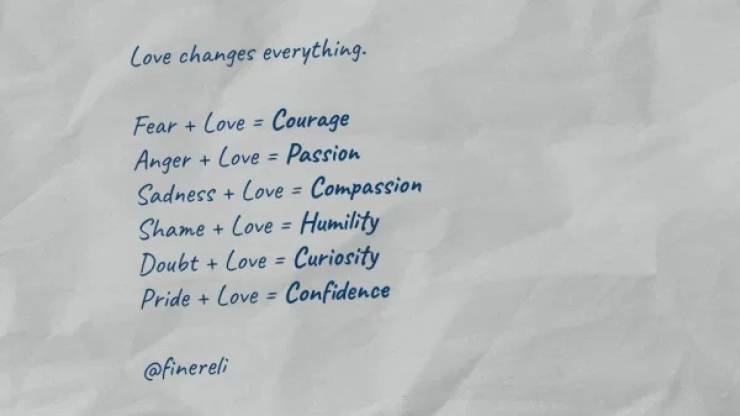 Love changes everything.
Fear + Love = Courage
Anger + Love = Passion
Sadness + Love = Compassion
Shame + Love = Humility
Doubt + Love = Curiosity
Pride + Love = Confidence
@finereli